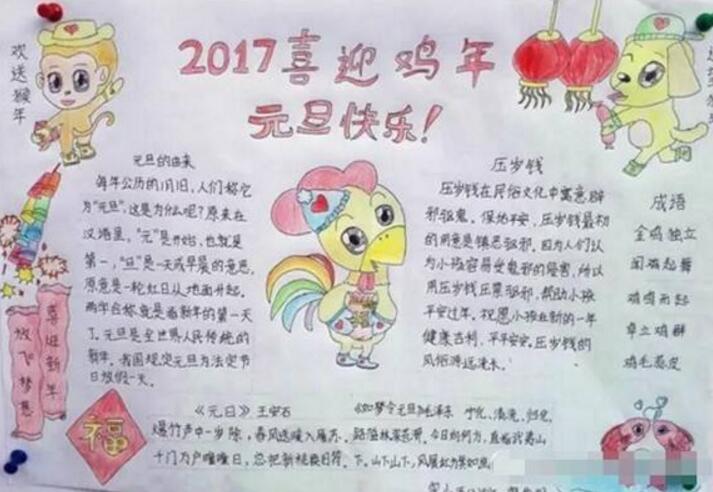 2017喜迎鸡年
元旦快乐!
欢送猴年
元旦的由来
每年公历的1月1日,人们称它
为“元旦”,这是为什么呢?原来在
汉语里,“元”是开始,也就是
第一,“旦”是一天或早晨的意思,
原意是一轮红日从地面升起。
两年合称就是指新年的第一天
了。元旦是全世界人民传统的
新年。我国规定元旦为法定节
日放假一天。
喜迎新年
放飞梦想
福
压岁钱
压岁钱在民俗文化中寓意辟
邪驱鬼。保佑平安。压岁钱最初
的用意是镇恶驱邪。因为人们认
为小孩容易受鬼邪的侵害,所以
用压岁钱压祟驱邪,帮助小孩
平安过年。祝愿小孩在新的一年
健康吉利、平平安安。压岁钱的
风俗源远流长。
成语
金鸡独立
闻鸡起舞
鸡鸣而起
卓立鸡群
鸡毛蒜皮
《元日》王安石
爆竹声中一岁除,春风送暖入屠苏。
千门万户曈曈日,总把新桃换旧符。
《如梦令元旦》毛泽东 宁化、清流、归化,
路隘林深苔滑。今日向何方,直指武夷山
下。山下山下,风展红旗如画。